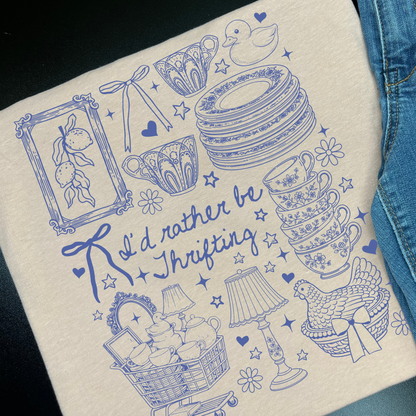 I'd rather be
Thrifting